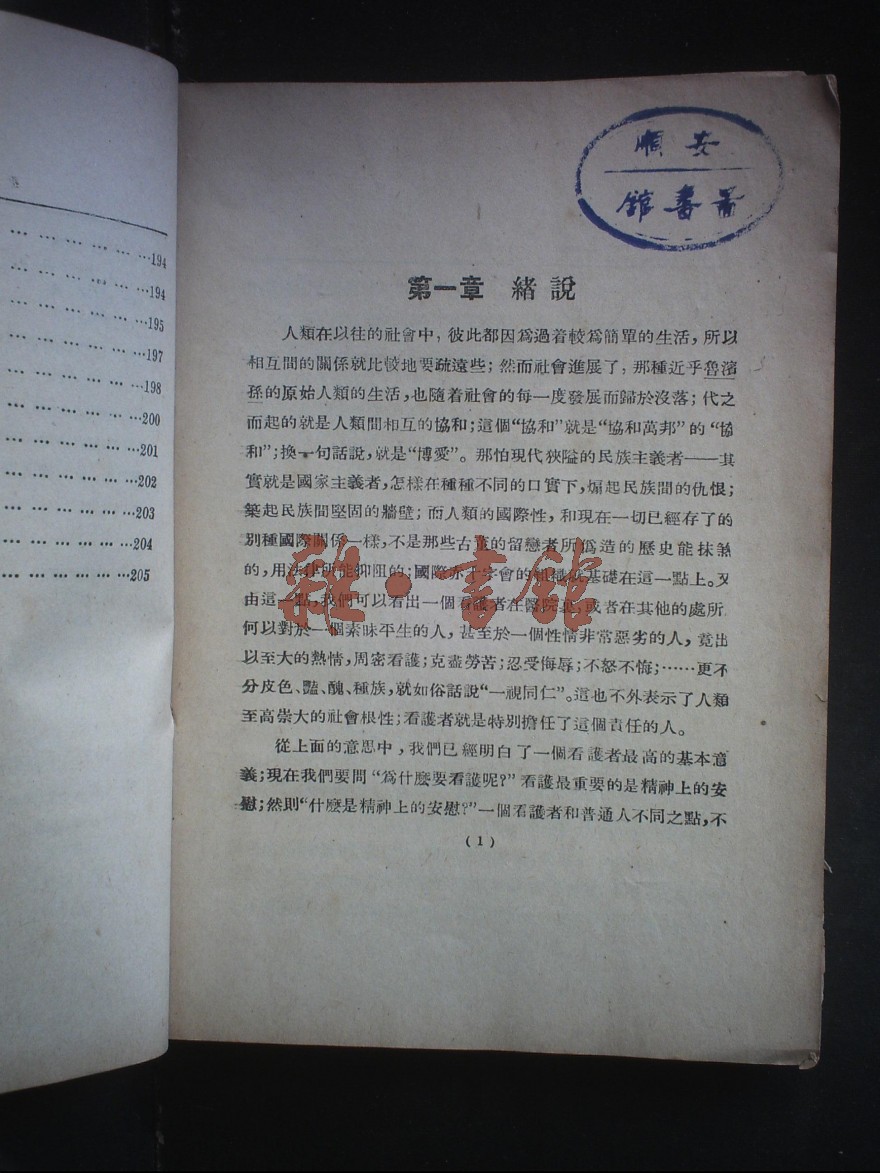 … … … … … …194
… … … … … …194
… … … … … …195
… … … … … …197
… … … … … …198
… … … … … …200
… … … … … …201
… … … … … …202
… … … … … …203
… … … … … …204
… … … … … …205
順安
館書圖
第一章 緒說
人類在以往的社會中，彼此都因爲過着較爲簡單的生活，所以
相互間的關係就比較地要疏遠些；然而社會進展了，那種近乎魯濱
孫的原始人類的生活，也隨着社會的每一度發展而歸於沒落；代之
而起的就是人類間相互的協和；這個“協和”就是“協和萬邦”的“協
和”；換一句話說，就是“博愛”。那怕現代狹隘的民族主義者——其
實就是國家主義者，怎樣在種種不同的口實下，煽起民族間的仇恨；
築起民族間堅固的牆壁；而人類的國際性，和現在一切已經存了的
別種國際關係一樣，不是那些古董的留戀者所僞造的歷史能抹煞
的，用法律所能抑阻的；國際赤十字會的組織就基礎在這一點上。又
由這一點，我們可以看出一個看護者在醫院裏；或者在其他的處所
何以對於一個素昧平生的人，甚至於一個性情非常惡劣的人，竟出
以至大的熱情，周密看護；克盡勞苦；忍受侮辱；不怒不悔；……更不
分皮色、豔、醜、種族，就如俗話說“一視同仁”。這也不外表示了人類
至高崇大的社會根性；看護者就是特別擔任了這個責任的人。
從上面的意思中，我們已經明白了一個看護者最高的基本意
義；現在我們要問“爲什麼要看護呢？”看護最重要的是精神上的安
慰；然則“什麼是精神上的安慰？”一個看護者和普通人不同之點，不
(1)
雜·書館